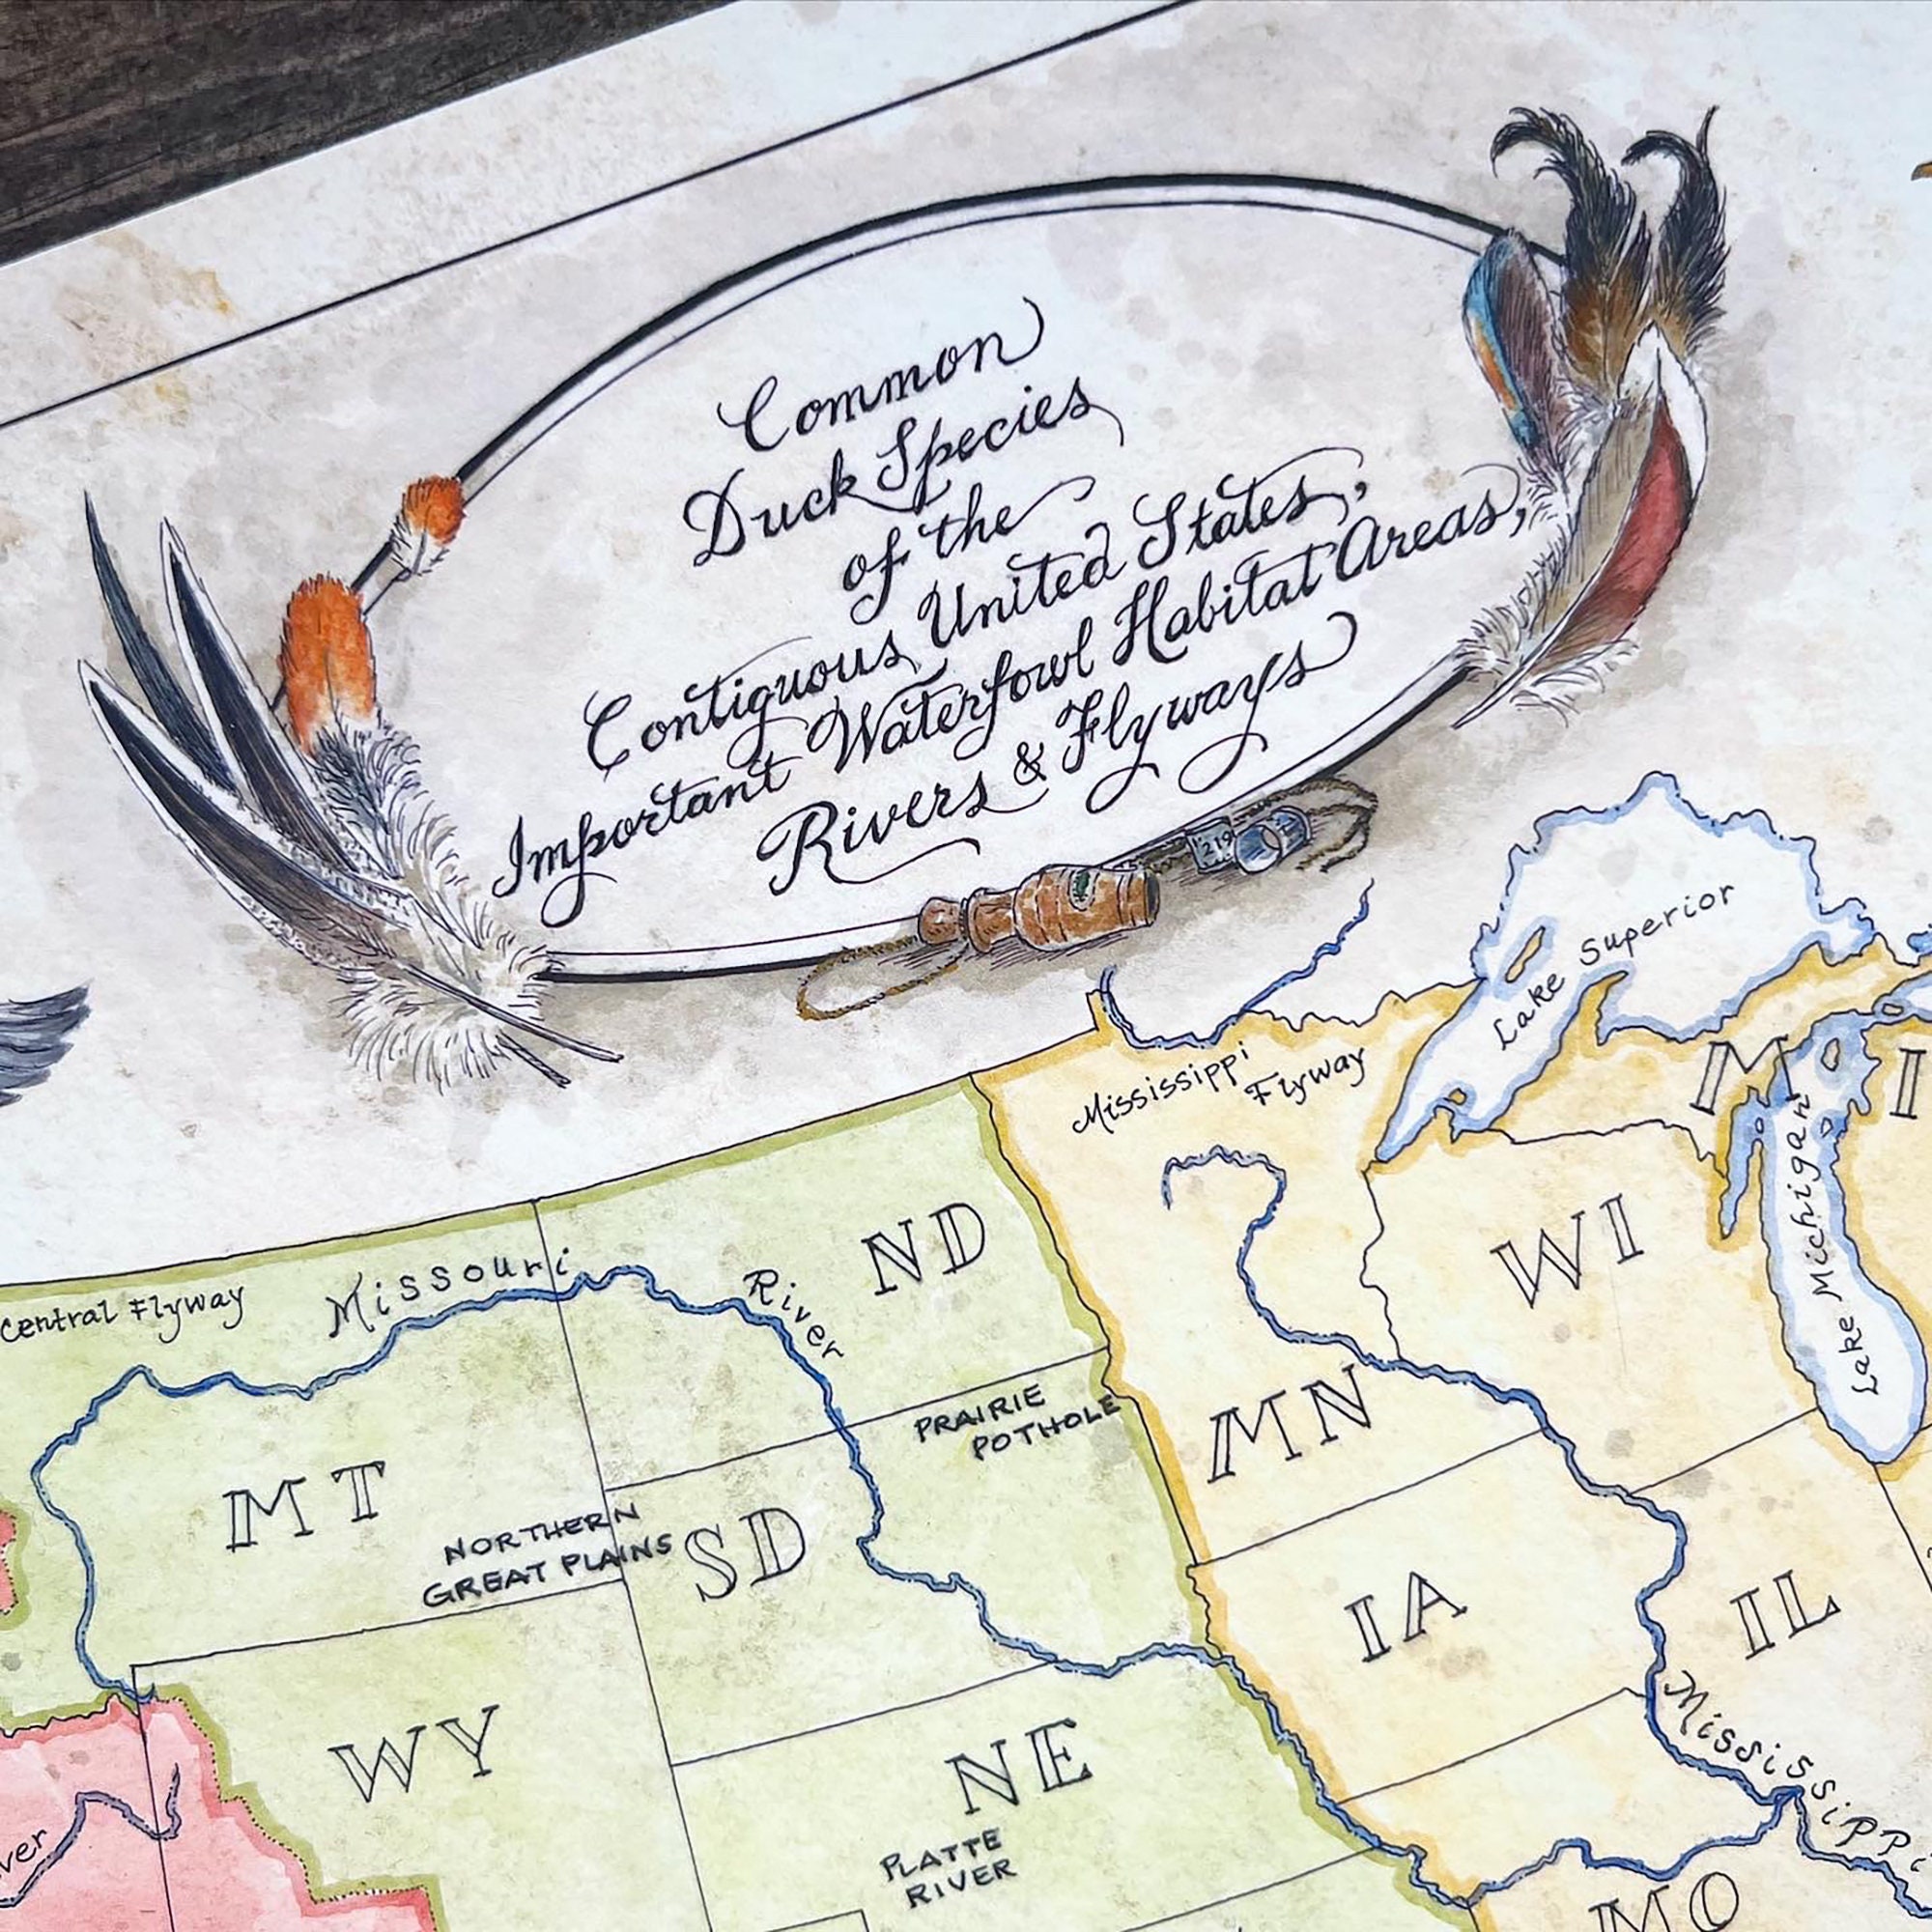 Common
Duck Species
of the
Contiguous United States,
Important Waterfowl Habitat Areas,
Rivers & Flyways
219
Lake Superior
Mississippi
Flyway
MI
Lake Michigan
ND
WI
Central Flyway
Missouri River
PRAIRIE
POTHOLE
MN
MT
NORTHERN
GREAT PLAINS
SD
IA
IL
WY
NE
Mississippi
PLATTE
RIVER
MO